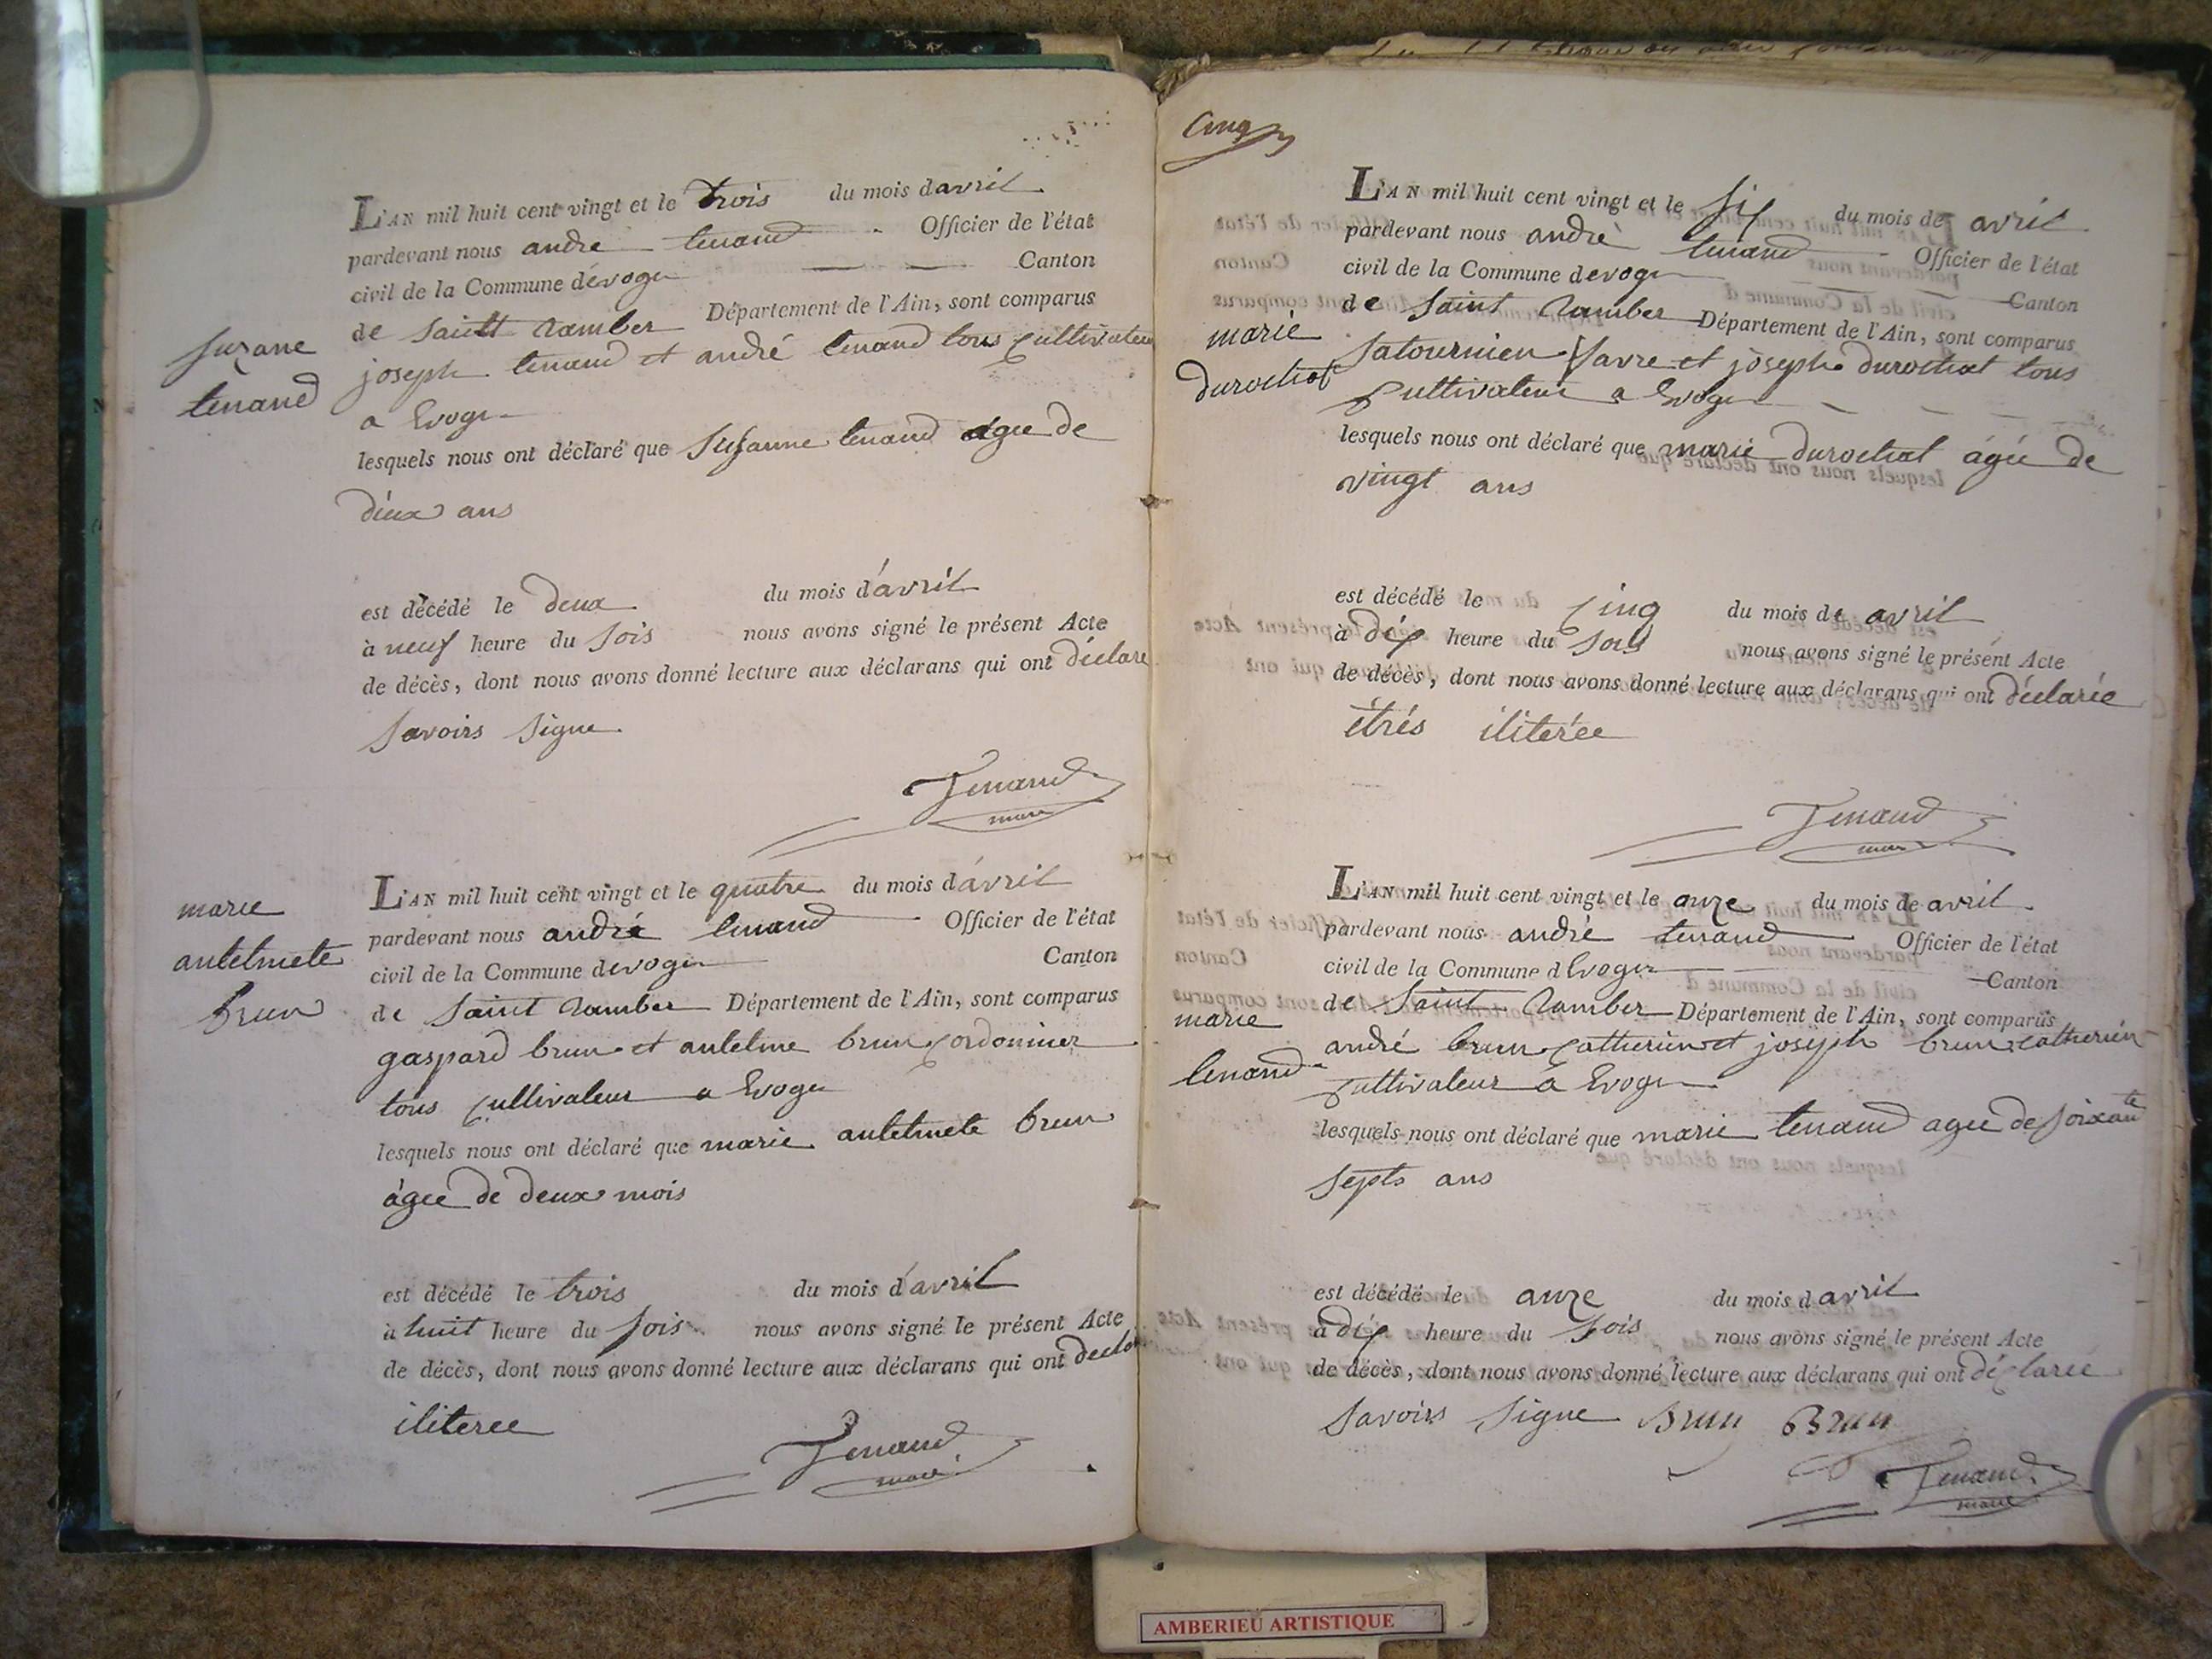 L'AN mil huit cent vingt et le trois du mois d avril
pardevant nous andre tenand Officier de l'état
civil de la Commune d évoge Canton
de Saint Ramber Département de l'Ain, sont comparus
joseph tenand et andré tenand tous cultivateur
a Evoge
suzane
tenand
lesquels nous ont déclaré que Susanne tenand agee de
deux ans
est décédé le deux du mois d'avril
à neuf heure du sois nous avons signé le présent Acte
de décès, dont nous avons donné lecture aux déclarans qui ont déclare
savoirs signe
Tenand
maire
L'AN mil huit cent vingt et le quatre du mois d'avril
pardevant nous andré tenand Officier de l'état
civil de la Commune d evoge Canton
de Saint Ramber Département de l'Ain, sont comparus
gaspard brun et antelme brun cordonnier
tous cultivateur a Evoge
marie
antelmete
brun
lesquels nous ont déclaré que marie antelmete brun
àgee de deux mois
est décédé le trois du mois d'avril
à huit heure du sois nous avons signé le présent Acte
de décès, dont nous avons donné lecture aux déclarans qui ont
iliteree
Tenand
maire
Cinq
L'AN mil huit cent vingt et le six du mois de avril
pardevant nous andré tenand Officier de l'état
civil de la Commune d evoge Canton
de Saint Ramber Département de l'Ain, sont comparus
favre et joseph durochat tous
cultivateur a Evoge
marie
durochat
lesquels nous ont déclaré que marie durochat ágée de
vingt ans
est décédé le cinq du mois de avril
à dix heure du sois nous avons signé le présent Acte
de décès, dont nous avons donné lecture aux déclarans qui ont déclarée
étrés ilitérée
Tenand
maire
L'AN mil huit cent vingt et le onze du mois de avril
pardevant nous andré tenand Officier de l'état
civil de la Commune d Evoge Canton
de Saint Ramber Département de l'Ain, sont comparus
andré brun catherin et joseph brun catherin
cultivateur a Evoge
marie
tenand
lesquels nous ont déclaré que marie tenand agee de soixante
septs ans
est décédé le onze du mois d avril
à dix heure du sois nous avons signé le présent Acte
de décès, dont nous avons donné lecture aux déclarans qui ont déclarée
savoirs signe Brun Brun
Tenand
maire
AMBERIEU ARTISTIQUE